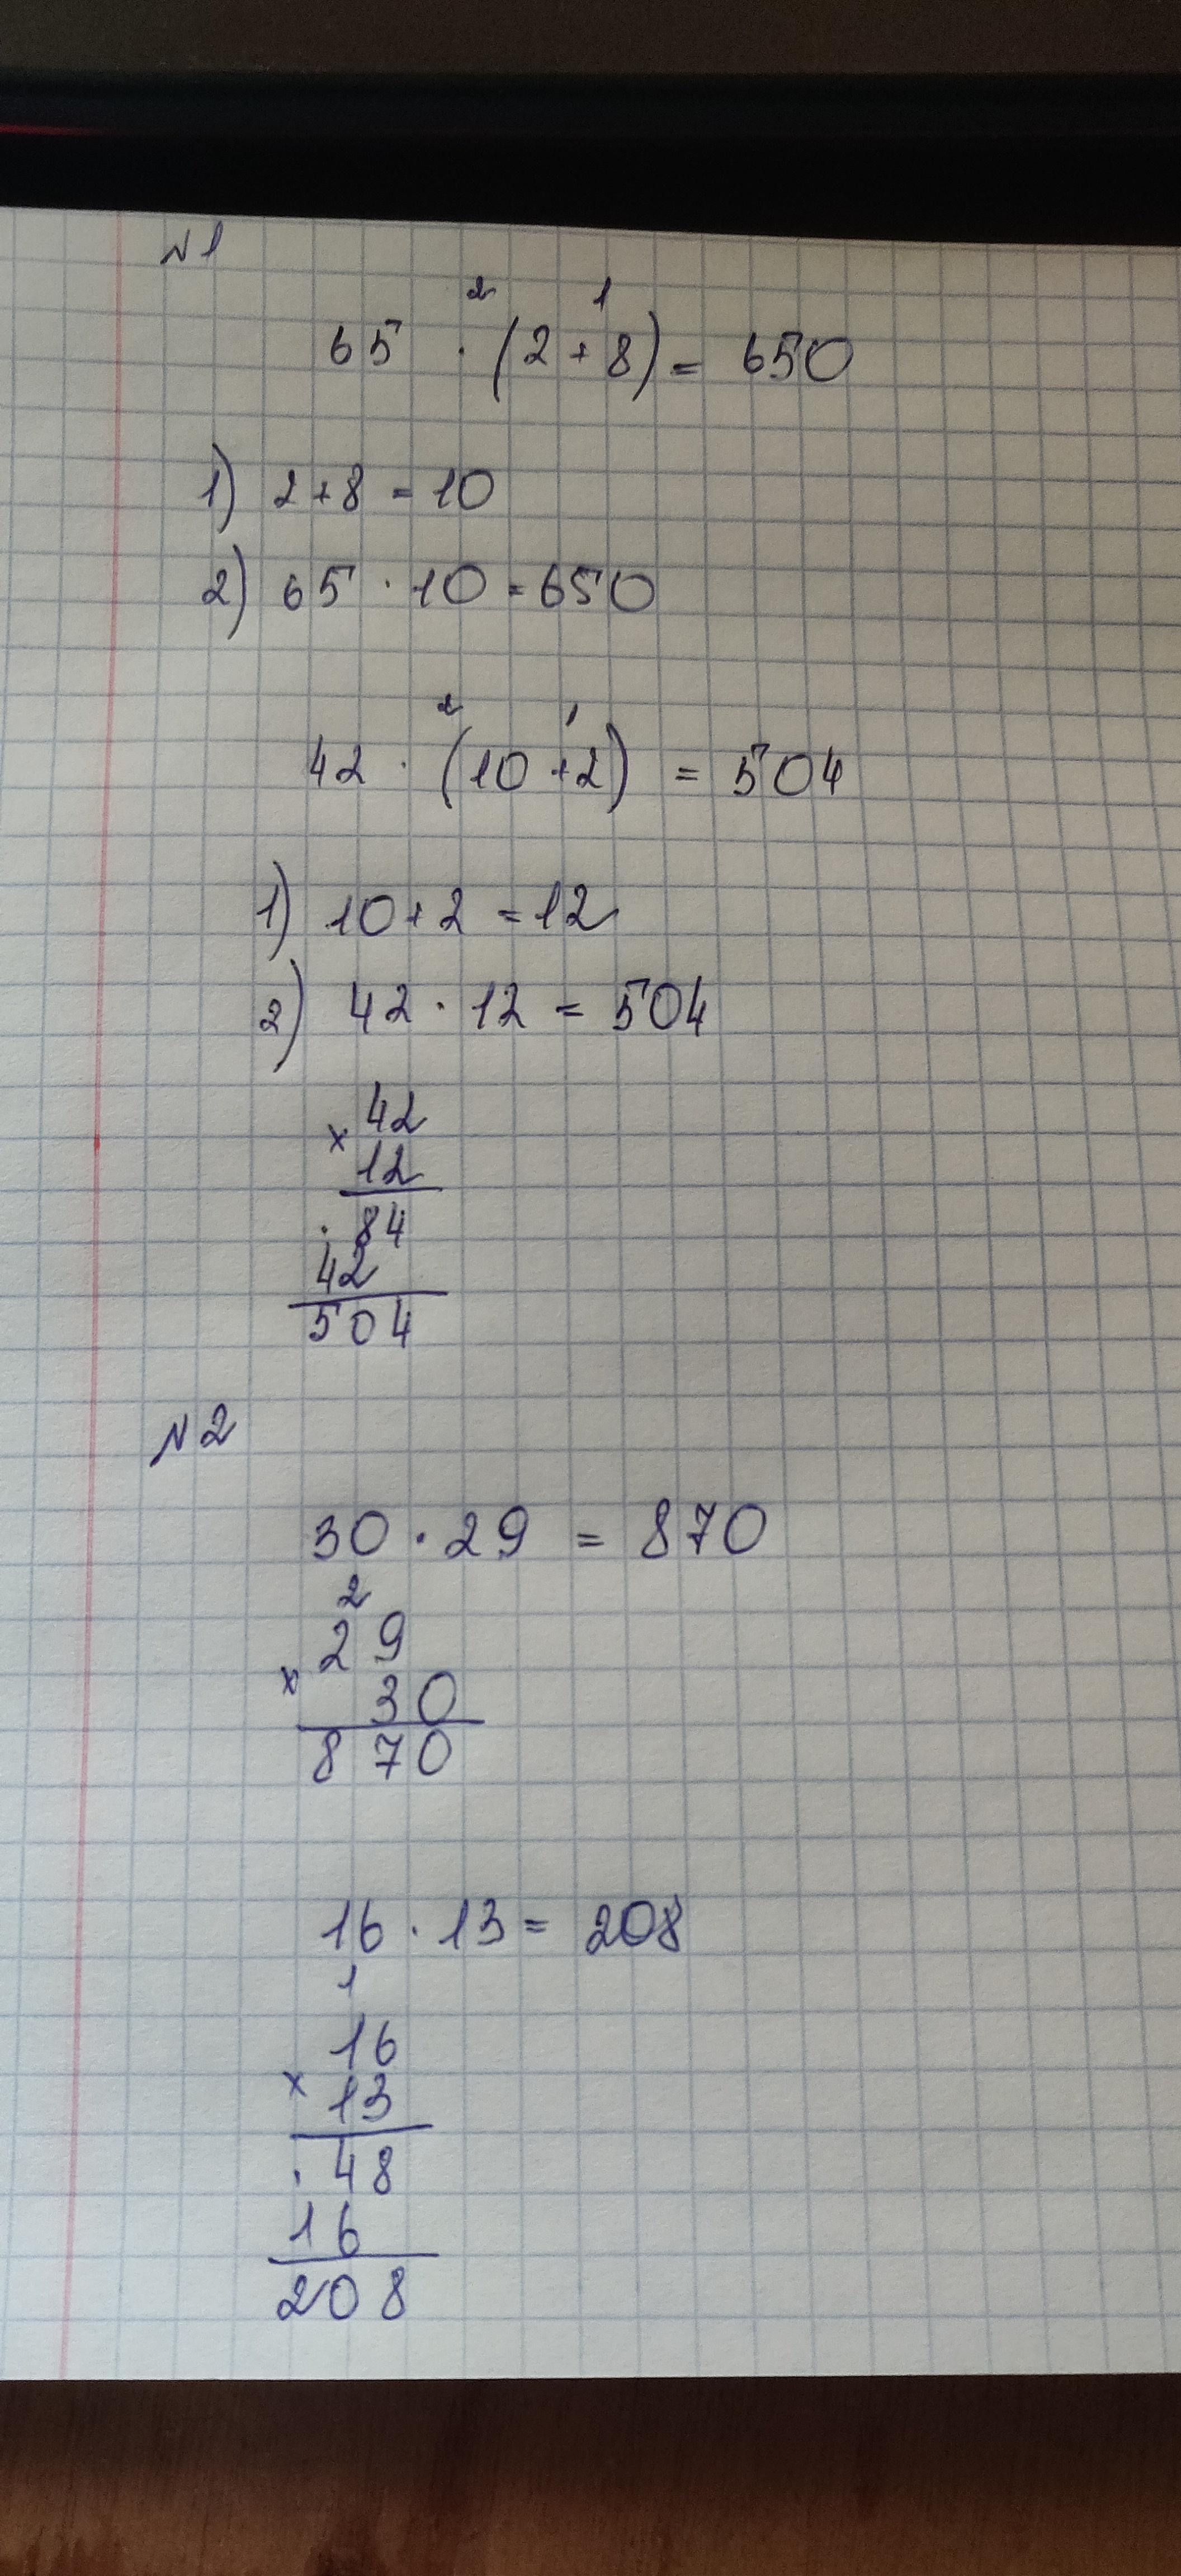 №1
2 1
65 · (2+8) = 650
1) 2+8 = 10
2) 65 · 10 = 650
2 1
42 · (10+2) = 504
1) 10+2 = 12
2) 42 · 12 = 504
42
x
12
· 84
42
504
№2
30 · 29 = 870
2
29
x
30
870
16 · 13 = 208
1
16
x
13
· 48
16
208